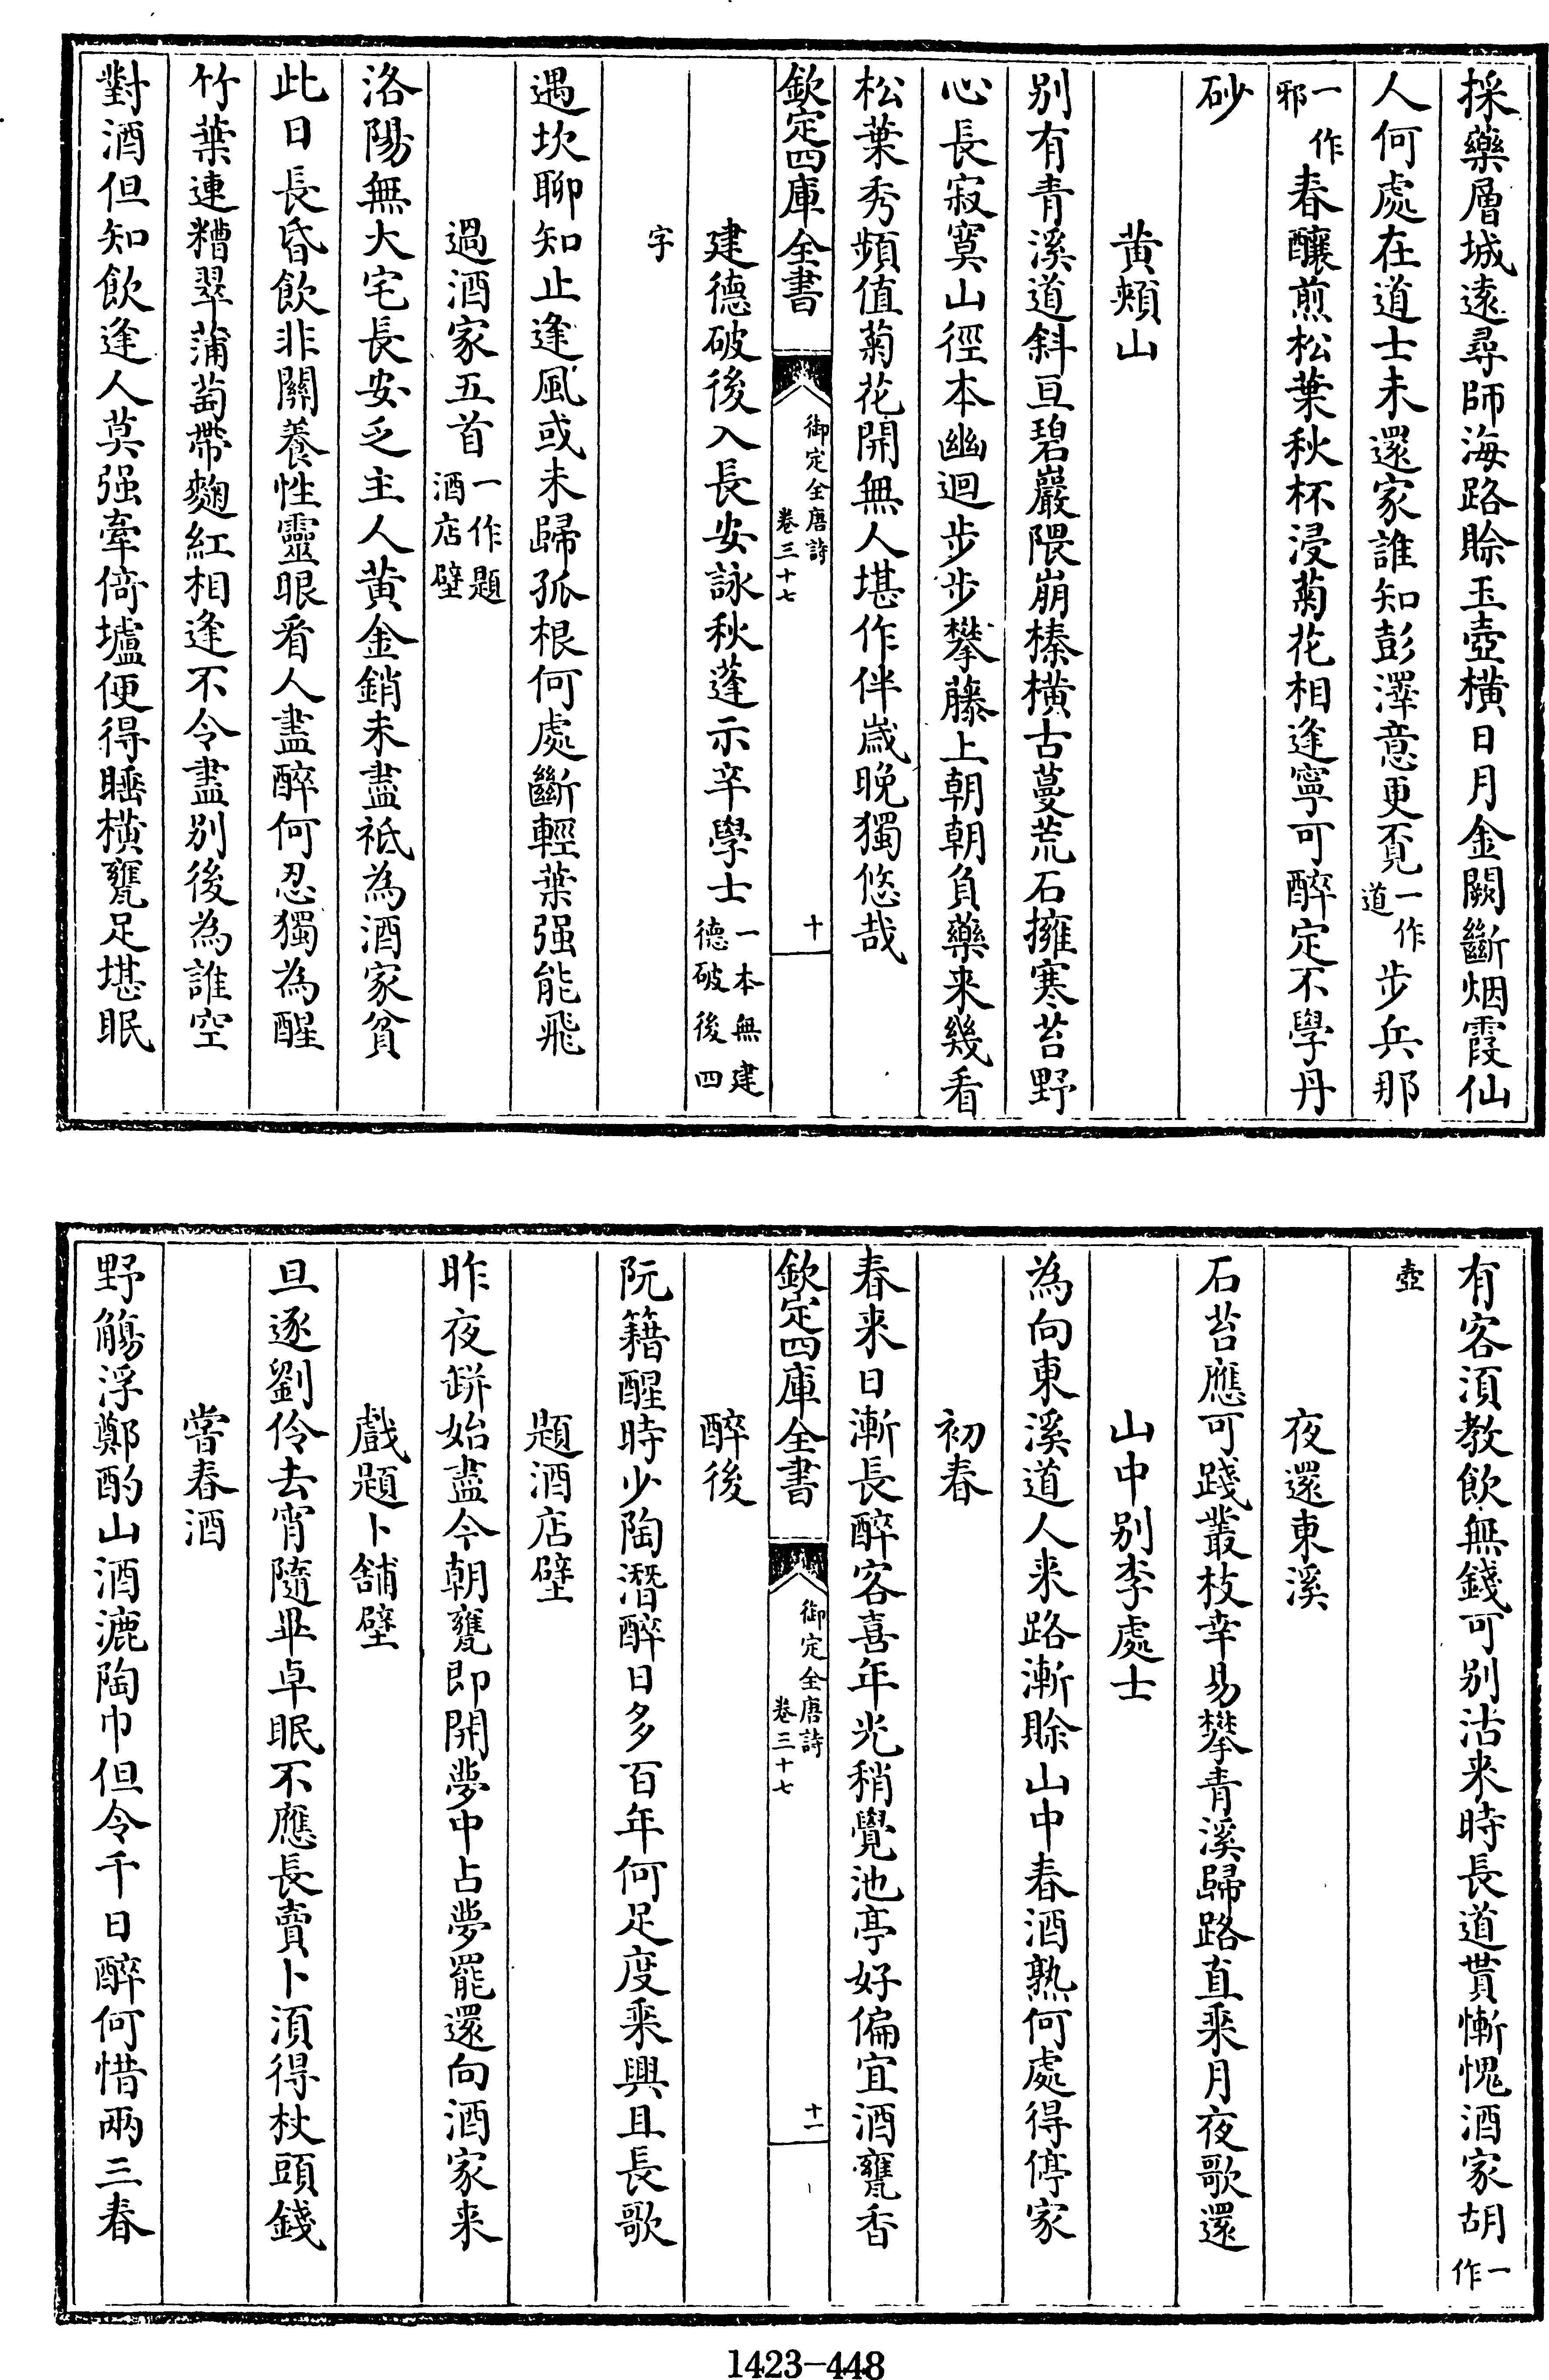 採藥層城逺尋師海路賖玉壺横日月金闕斷烟霞仙
人何處在道士未還家誰知彭澤意更覔一作道步兵那
一作邪春釀煎松葉秋杯浸菊花相逢寧可醉定不學丹
砂
黄頰山
别有青溪道斜亘碧巖隈崩榛横古蔓荒石擁寒苔野
心長寂寞山徑本幽迴步步攀藤上朝朝負藥来幾看
松葉秀頻值菊花開無人堪作伴歲晚獨悠哉
欽定四庫全書
御定全唐詩
卷三十七
十
建德破後入長安詠秋蓬示辛學士一本無建德破後四
字
遇坎聊知止逢風或未歸孤根何處斷輕葉强能飛
過酒家五首一作題酒店壁
洛陽無大宅長安乏主人黄金銷未盡祗為酒家貧
此日長昏飲非關養性靈眼看人盡醉何忍獨為醒
竹葉連糟翠蒲萄帶麴紅相逢不令盡别後為誰空
對酒但知飲逢人莫强牽倚壚便得睡横甕足堪眠
有客須教飲無錢可别沽来時長道貰慚愧酒家胡一作
壺
夜還東溪
石苔應可踐叢枝幸易攀青溪歸路直乗月夜歌還
山中别李處士
為向東溪道人来路漸賖山中春酒熟何處得停家
初春
春来日漸長醉客喜年光稍覺池亭好偏宜酒甕香
欽定四庫全書
御定全唐詩
卷三十七
十一
醉後
阮籍醒時少陶潛醉日多百年何足度乗興且長歌
題酒店壁
昨夜缾始盡今朝甕即開夢中占夢罷還向酒家来
戲題卜舖壁
旦逐劉伶去宵隨畢卓眠不應長賣卜須得杖頭錢
嘗春酒
野觴浮鄭酌山酒漉陶巾但令千日醉何惜兩三春
1423-448